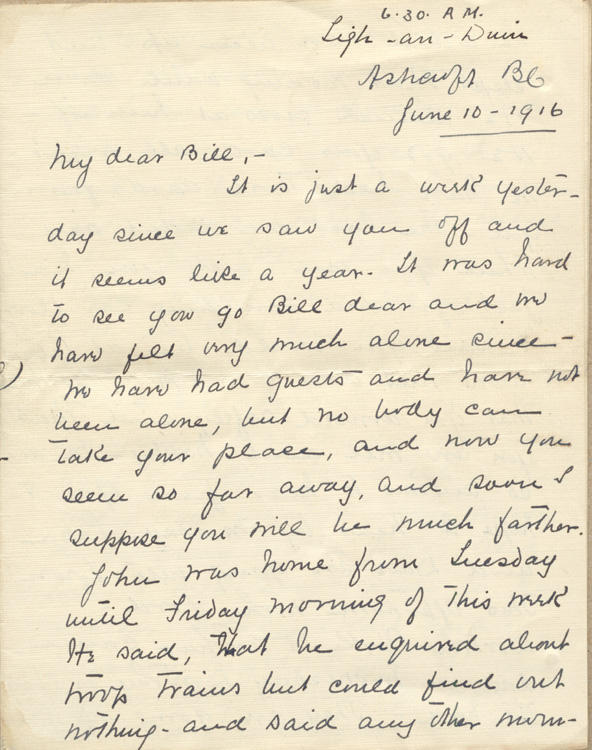 6.30. A.M.
Tigh-an-Duin
Ashcroft BC
June 10-1916
My dear Bill,-
It is just a week yester-
day since we saw you off and
it seems like a year. It was hard
to see you go Bill dear and we
have felt very much alone since-
We have had guests and have not
been alone, but no body can
take your place, and now you
seem so far away, and soon I
suppose you will be much farther.
John was home from Tuesday
until Friday morning of this week
He said, that he enquired about
troop trains but could find out
nothing- and said any other morn-